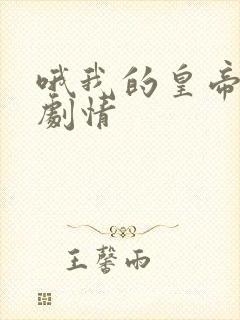 哦我的皇帝
劇情
王馨雨